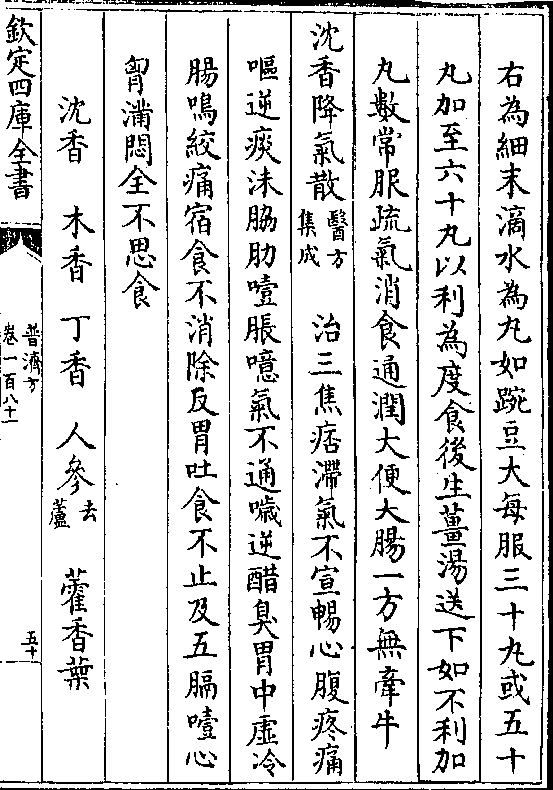 右為細末滴水為丸如豌豆大每服三十丸或五十
丸加至六十丸以利為度食後生薑湯送下如不利加
丸數常服疏氣消食通潤大便大腸一方無牽牛
沈香降氣散醫方集成　治三焦痞滯氣不宣暢心腹疼痛
嘔逆痰沫脇肋噎脹噫氣不通噦逆醋臭胃中虛冷
腸鳴絞痛宿食不消除反胃吐食不止及五膈噎心
胷滿悶全不思食
沈香　木香　丁香　人參去蘆　藿香葉
欽定四庫全書
普濟方
卷一百八十一
五十